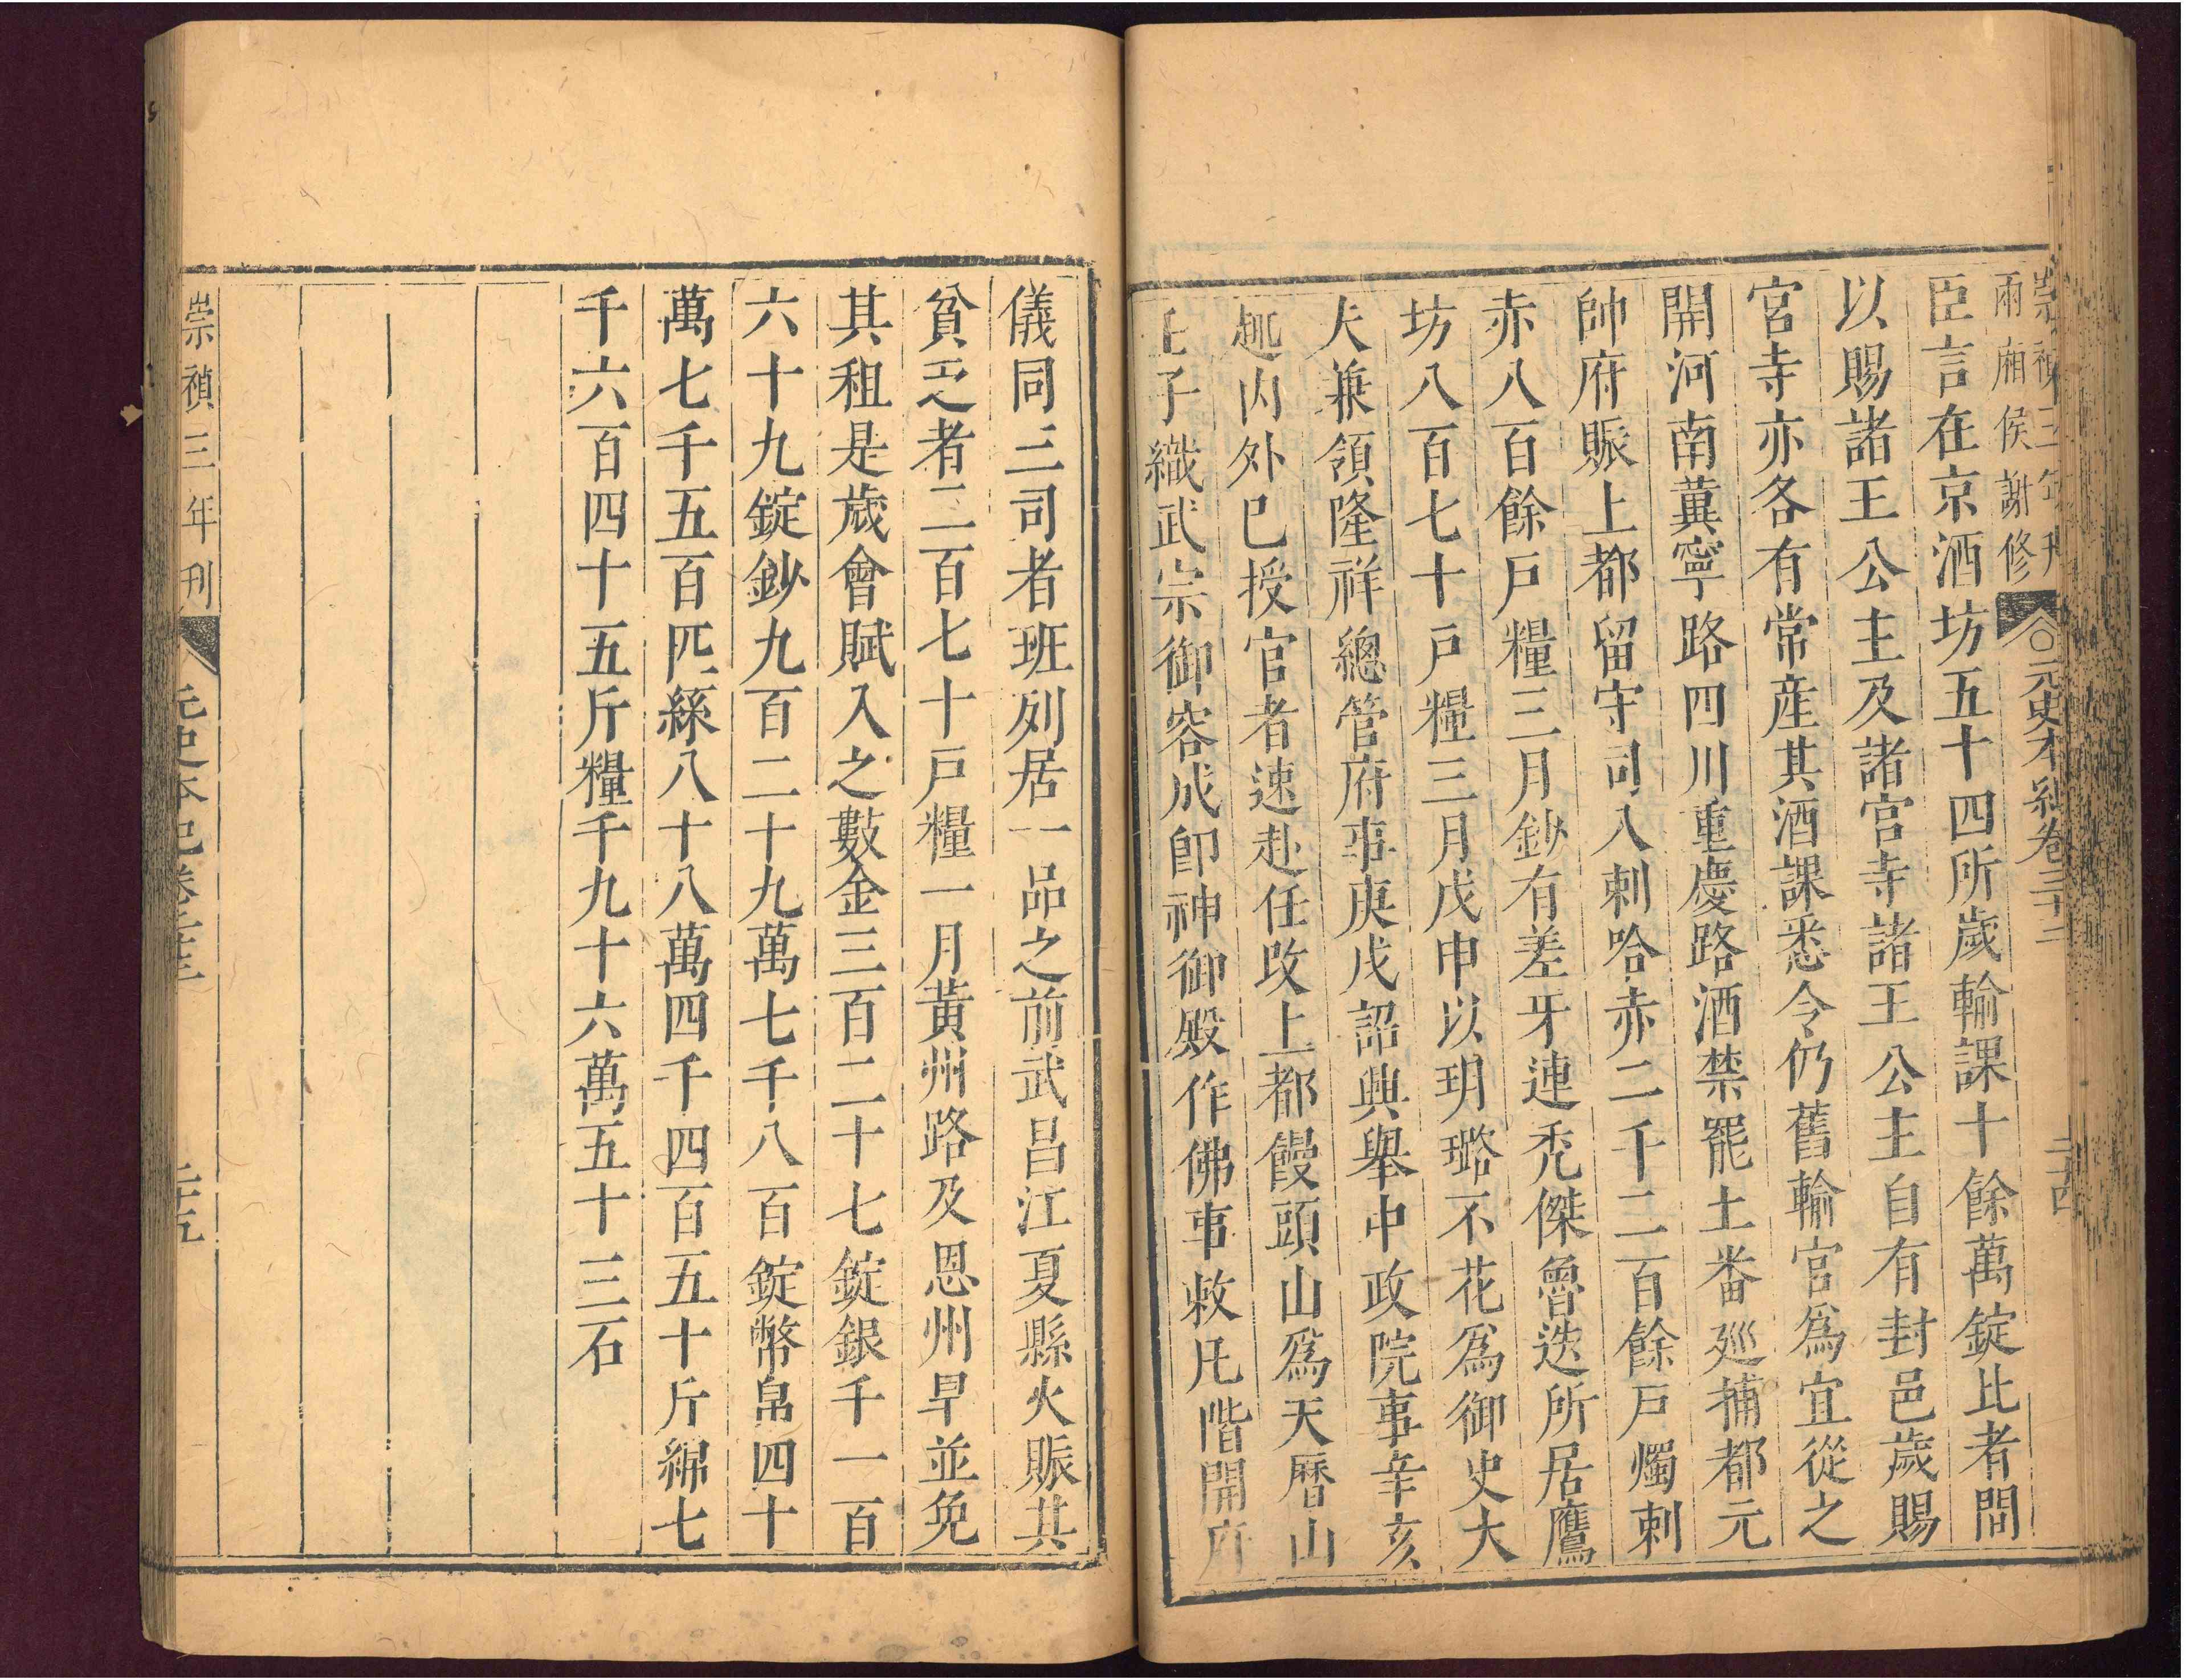 崇禎三年刊
兩廂侯謝修
元史本紀卷三十三
二十四
臣言在京酒坊五十四所歲輸課十餘萬錠比者間
以賜諸王公主及諸宮寺諸王公主自有封邑歲賜
宮寺亦各有常產其酒課悉令仍舊輸官爲宜從之
開河南冀寧路四川重慶路酒禁罷土番廵捕都元
帥府賑上都留守司八剌哈赤二千二百餘戸燭剌
赤八百餘戸糧三月鈔有差牙連禿傑魯迭所居鷹
坊八百七十戸糧三月戊申以玥璐不花爲御史大
夫兼領隆祥總管府事庚戌詔興舉中政院事辛亥
趣內外已授官者速赴任改上都饅頭山爲天曆山
壬子織武宗御容成卽神御殿作佛事敕凡階開府
儀同三司者班列居一品之前武昌江夏縣火賑其
貧乏者二百七十戸糧一月黃州路及恩州旱並免
其租是歲會賦入之數金三百二十七錠銀千一百
六十九錠鈔九百二十九萬七千八百錠幣帛四十
萬七千五百匹絲八十八萬四千四百五十斤綿七
千六百四十五斤糧千九十六萬五十三石
崇禎三年刊
元史本紀卷三十三
二十五